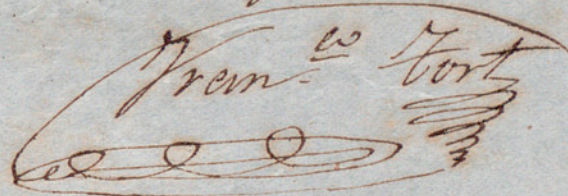 Fran.co Tort